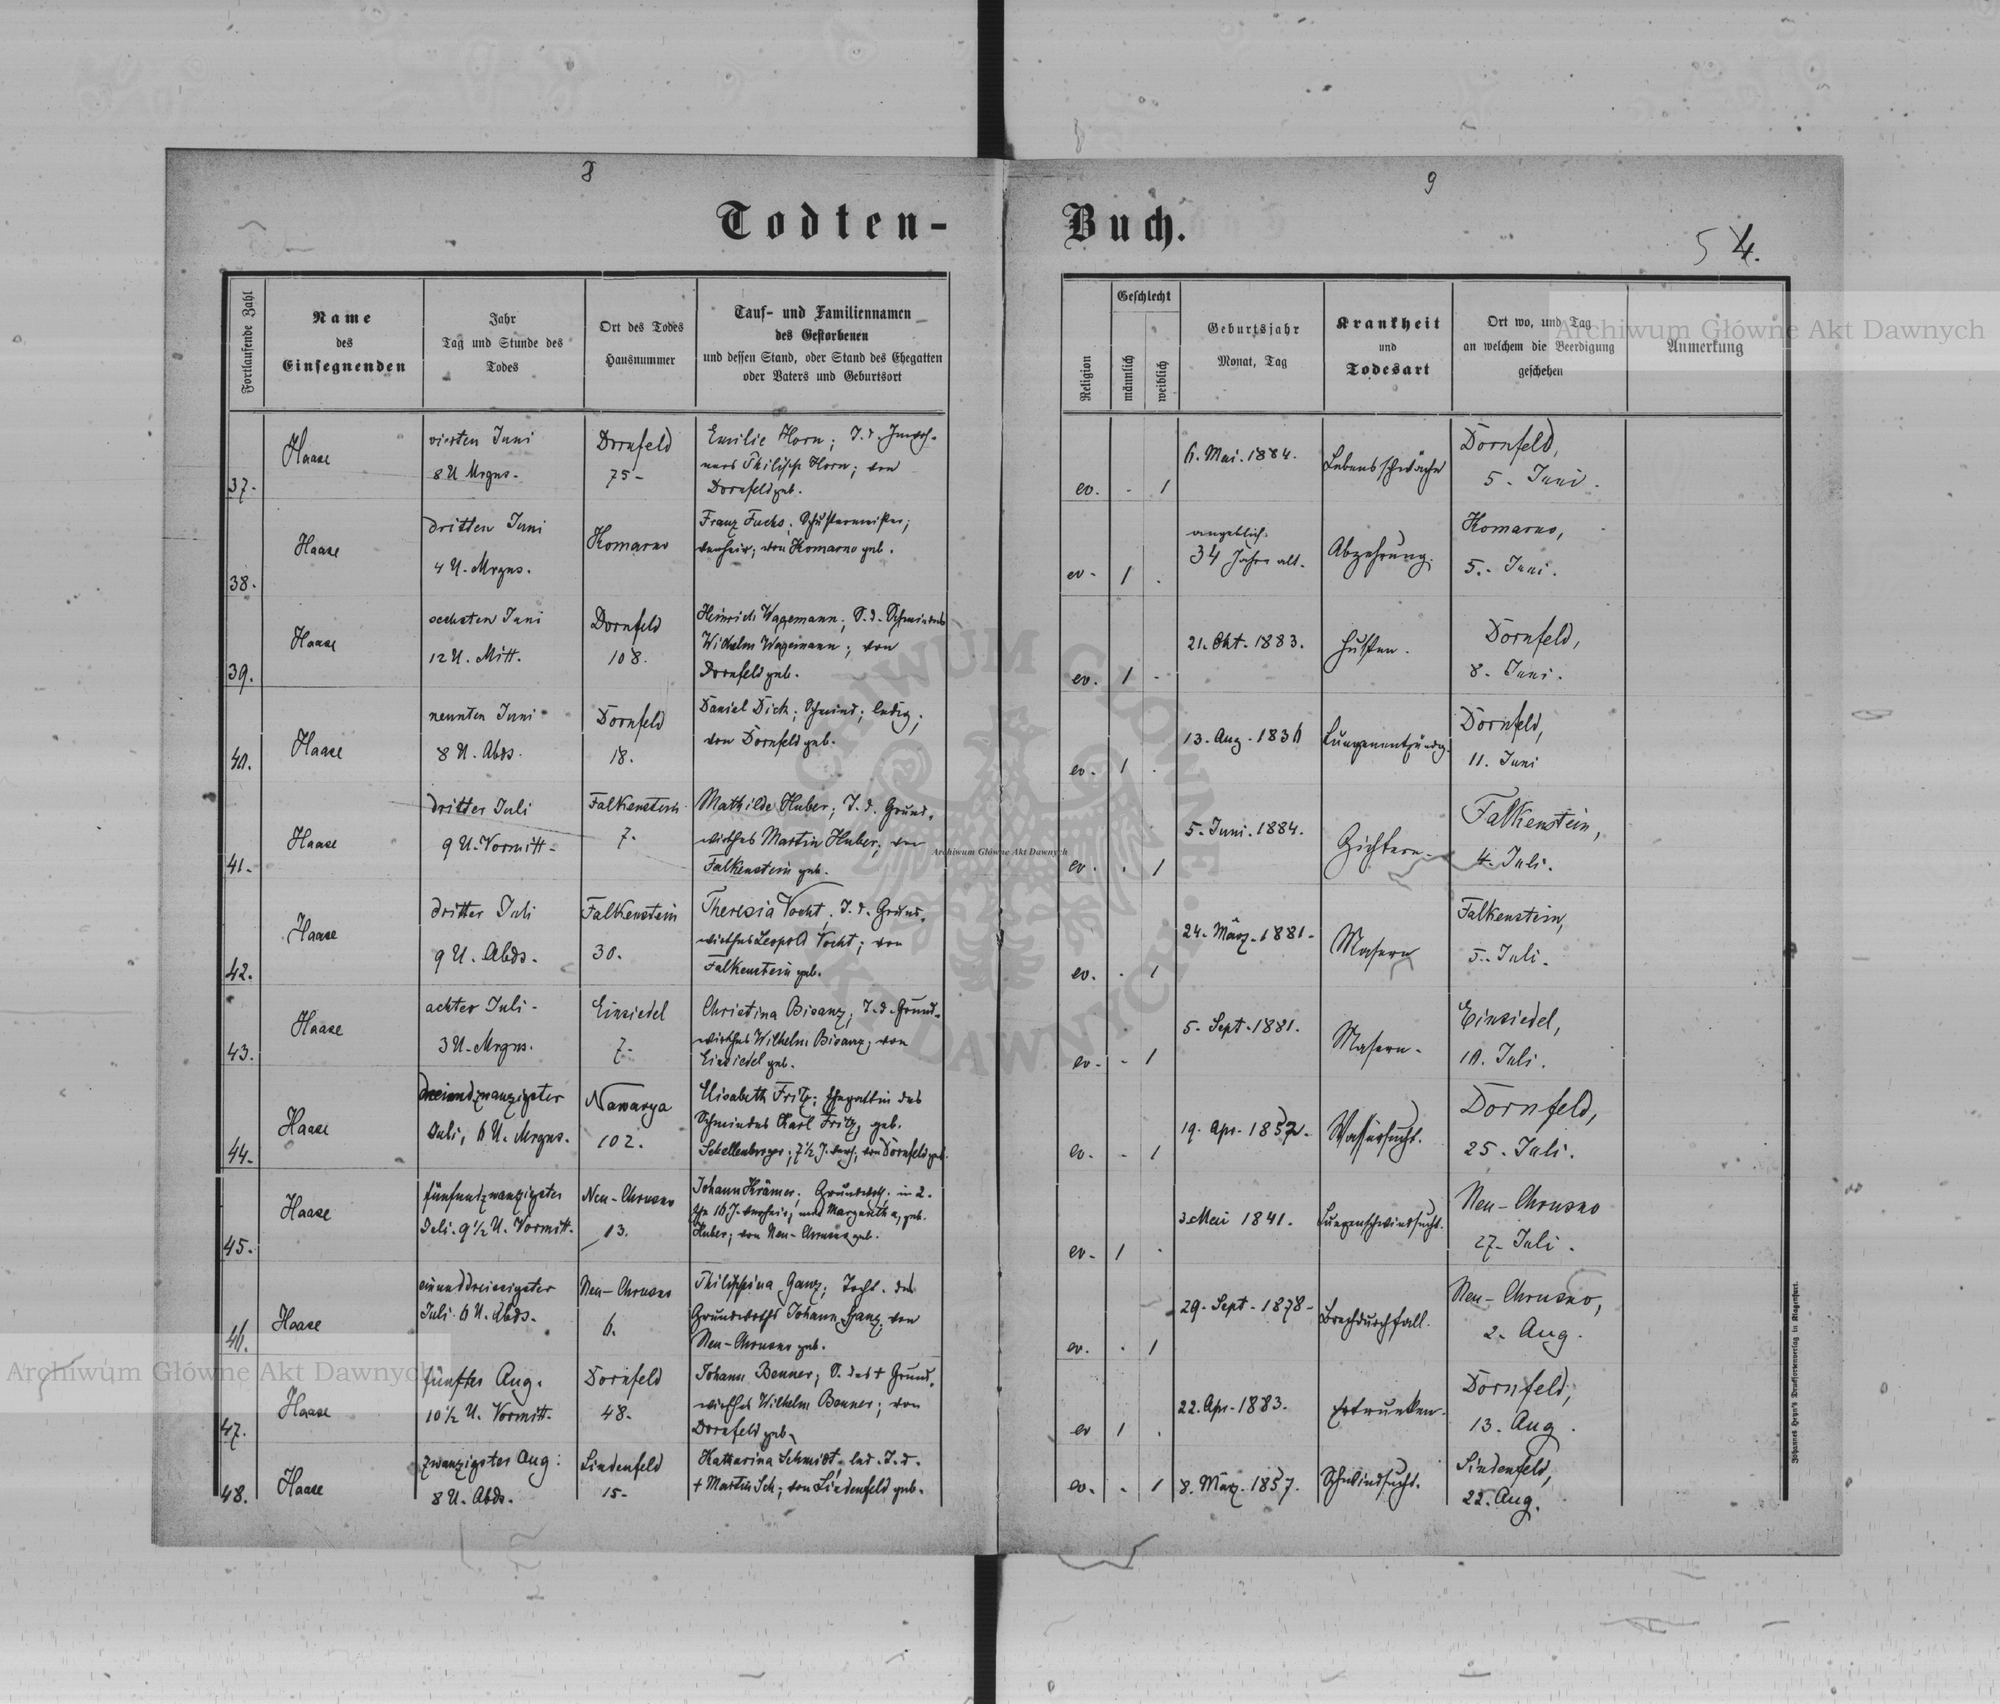 8
9
Todten-
Buch.
5 4.
Fortlaufende Zahl
Name
des
Einsegnenden
Jahr
Tag und Stunde des
Todes
Ort des Todes
Hausnummer
Tauf- und Familiennamen
des Gestorbenen
und dessen Stand, oder Stand des Ehegatten
oder Vaters und Geburtsort
Religion
Geschlecht
männlich
weiblich
Geburtsjahr
Monat, Tag
Krankheit
und
Todesart
Ort wo, und Tag
an welchem die Beerdigung
geschehen
Anmerkung
37.
Haase
vierten Juni
8 U Mrgns.
Dornfeld
75-
Emilie Horn; T. d.
Philipp Horn; von
Dornfeld geb.
ev. - 1
6. Mai. 1884.
Lebensschwäche
Dornfeld,
5. Juni.
38.
Haase
dritten Juni
4 U. Mrgns.
Komarno
Franz Fuchs; Schustermeister;
verheir; von Komarno geb.
ev. 1 .
angeblich
34 Jahre alt.
Abzehrung.
Komarno,
5. Juni.
39.
Haase
sechsten Juni
12 U. Mitt.
Dornfeld
108.
Heinrich Wagemann; S. d. Schmiedes
Wilhelm Wagemann; von
Dornfeld geb.
ev. 1 -
21. Okt. 1883.
Husten.
Dornfeld,
8. Juni.
40.
Haase
neunten Juni
8 U. Abds.
Dornfeld
18.
Daniel Dick; Schmied; ledig;
von Dornfeld geb.
ev. 1 .
13. Aug. 1836
Lungenentzündg.
Dornfeld,
11. Juni
41.
Haase
dritter Juli
9 U. Vormitt.
Falkenstein
7.
Mathilde Huber; T. d. Grund-
wirthes Martin Huber; von
Falkenstein geb.
ev. . 1
5. Juni. 1884.
Gichtern.
Falkenstein,
4. Juli.
42.
Haase
dritter Juli
9 U. Abds.
Falkenstein
30.
Theresia Vocht; T. d. Grund-
wirthes Leopold Vocht; von
Falkenstein geb.
ev. . 1
24. März. 1881.
Masern
Falkenstein,
5. Juli.
43.
Haase
achter Juli.
3 U. Mrgns.
Einsiedel
7.
Christina Bisanz; T. d. Grund-
wirthes Wilhelm Bisanz; von
Einsiedel geb.
ev. - 1
5. Sept. 1881.
Masern.
Einsiedel,
10. Juli.
44.
Haase
dreiundzwanzigster
Juli, 6 U. Mrgns.
Nawarya
102.
Elisabeth Fritz; Ehegattin des
Schmiedes Karl Fritz, geb.
Schellenberger; 7½ J. verh; von Dornfeld geb.
ev. - 1
19. Apr. 1857.
Wassersucht.
Dornfeld,
25. Juli.
45.
Haase
fünfundzwanzigster
Juli. 9½ U. Vormitt.
Neu-Chrusno
13.
Johann Krämer; Grundwirth; in 2.
Ehe 16 J. verheir; mit Margaretha, geb.
Huber; von Neu-Chrusno geb.
ev. 1 .
3. Mai 1841.
Lungenschwindsucht.
Neu-Chrusno
27. Juli.
46.
Haase
einunddreissigster
Juli. 6 U. Abds.
Neu-Chrusno
6.
Philippina Ganz; Tocht. des
Grundwirths Johann Ganz; von
Neu-Chrusno geb.
ev. . 1
29. Sept. 1878.
Brechdurchfall.
Neu-Chrusno,
2. Aug.
47.
Haase
fünfter Aug.
10½ U. Vormitt.
Dornfeld
48.
Johann Benner; S. des † Grund-
wirthes Wilhelm Benner; von
Dornfeld geb.
ev 1 .
22. Apr. 1883.
Ertrunken.
Dornfeld,
13. Aug.
48.
Haase
zwanzigster Aug:
8 U. Abds.
Lindenfeld
15.
Katharina Schmidt, led. T. d.
† Martin Sch; von Lindenfeld geb.
ev. . 1
8. März. 1857.
Schwindsucht.
Lindenfeld,
22. Aug.
Johannes Heyn's Drucksortenverlag in Klagenfurt.
Archiwum Główne Akt Dawnych
Archiwum Główne Akt Dawnych
Archiwum Główne Akt Dawnych
ARCHIWUM GŁÓWNE AKT DAWNYCH